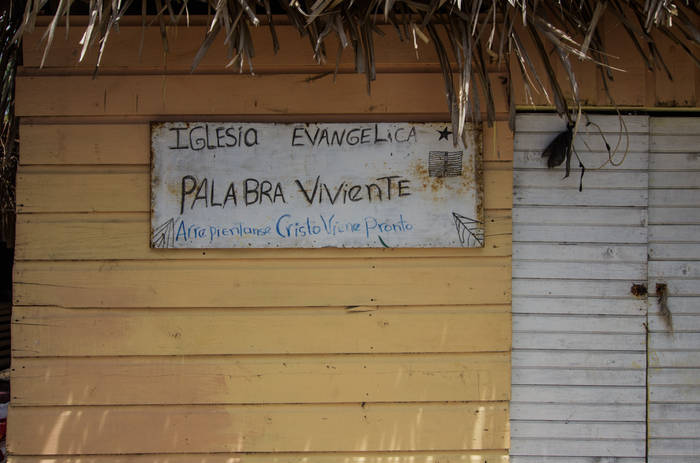 IGLESia EVANGELiCA
PALABRA ViVienTE
Arrepientanse Cristo Viene Pronto